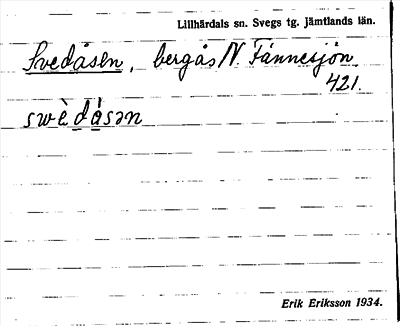 Lillhärdals sn. Svegs tg. Jämtlands län.
Svedåsen, bergås N. Fännesjön
421.
swèdå̀sən
Erik Eriksson 1934.